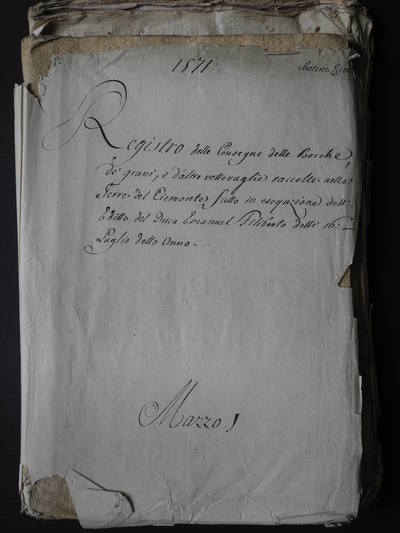 1571.
Materie Econ
Registro delle Consegne delle Bocche,
de' grani, e d'altre vettovaglie raccolte nelle
Terre del Piemonte, fatto in esequzione dell'
Editto del Duca Emanuel Filiberto delli 16.
Luglio detto Anno -
Mazzo 1